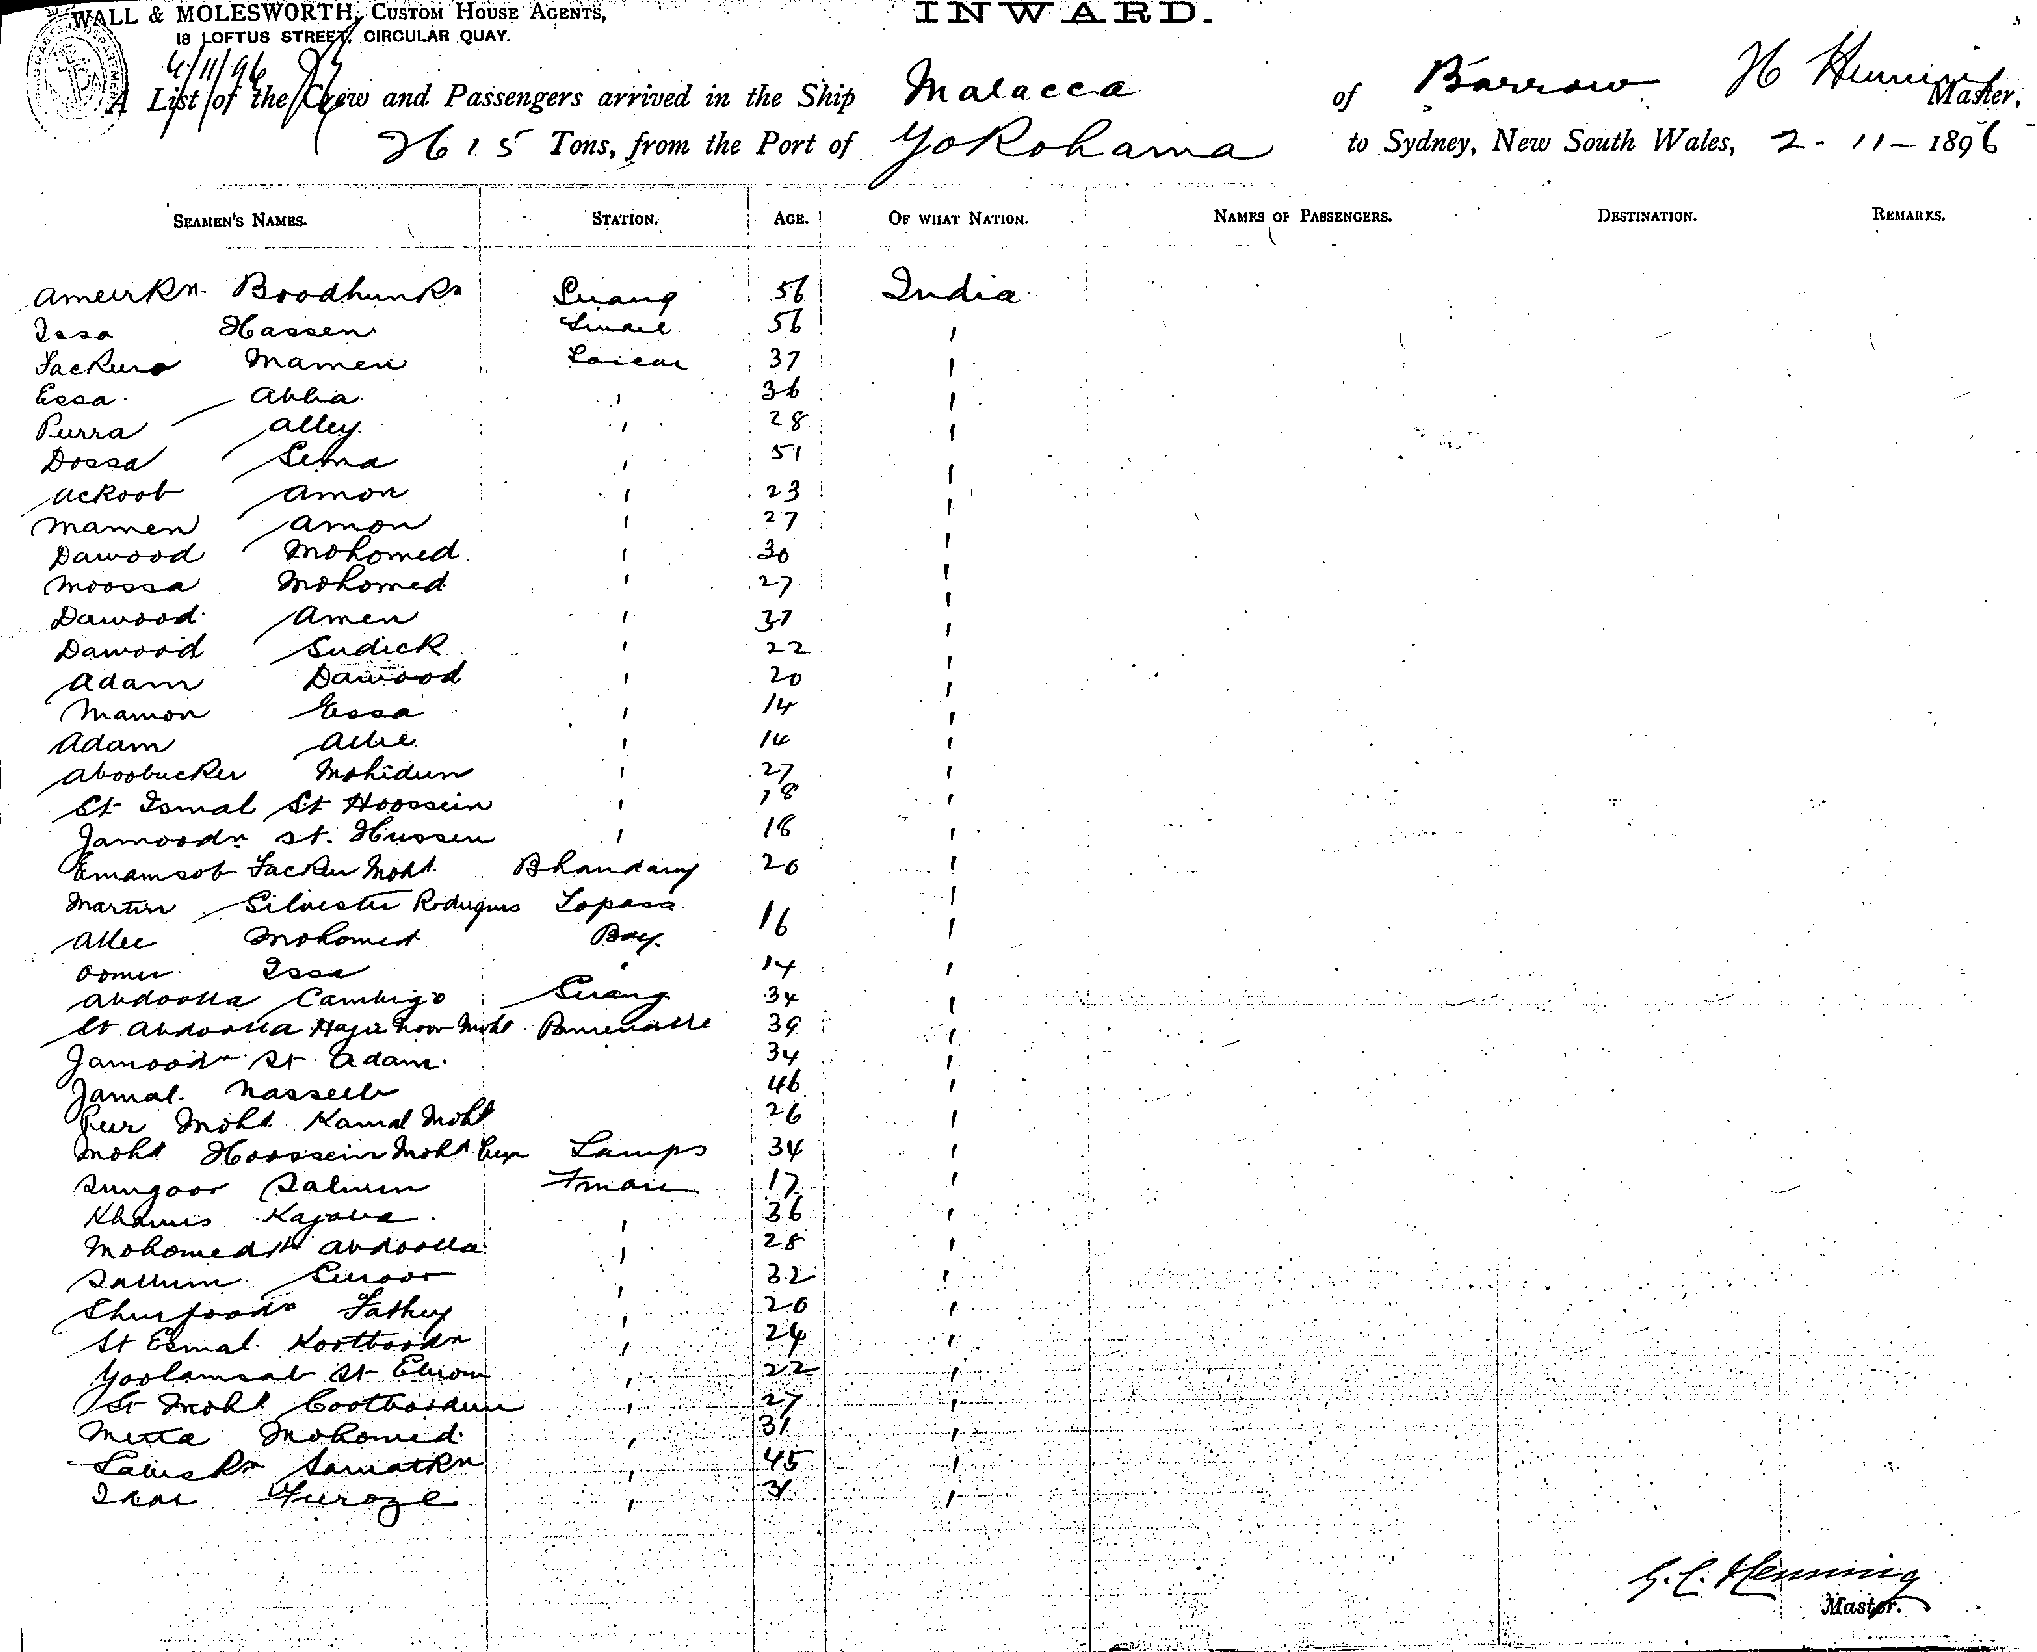 WALL & MOLESWORTH, CUSTOM HOUSE AGENTS,
18 LOFTUS STREET, CIRCULAR QUAY.
INWARD.
4/11/96
A List of the Crew and Passengers arrived in the Ship Malacca of Barrow H Henning Master,
2615 Tons, from the Port of Yokohama to Sydney, New South Wales, 2-11-1896
SEAMEN'S NAMES. STATION. AGE. OF WHAT NATION. NAMES OF PASSENGERS. DESTINATION. REMARKS.
Boodhunkn 56 India
Issa Hassen 56 "
Mamen Lascar 37 "
Essa Abba " 36 "
Purra Alley " 28 "
Dossa Sema " 51 "
Ackoob Amon " 23 "
Mamen Amon " 27 "
Dawood Mohomed " 30 "
Moossa Mohomed " 27 "
Dawood Amen " 37 "
Dawood Sudick " 22 "
Adam Dawood " 20 "
Mamon Essa " 14 "
Adam " 14 "
Aboobucker Mohidun " 27 "
St Ismal St Hoossein " 18 "
Jamoodn St. Hussen " 18 "
Emamsob Moht Bhandary 20 "
Martin Silvester Rodrigues Topass "
Allee Mohomed Boy 16 "
Oomer Issa " 14 "
Abdoolla Serang 34 "
St Abdoolla Hajee Noor Moht 39 "
Jamoodn St Adam 34 "
Jamal Nasseeb 46 "
Moht Kamal Moht 26 "
Moht Hoossein Moht Lamps 34 "
Sungoor 17 "
Khamis " 36 "
Mohomed Abdoolla " 28 "
Suroor " 32 "
Shurfoodn " 20 "
St Esmal Kootboodn " 24 "
Goolamsab St " 22 "
St Moht Cootboodun " 27 "
Meeta Mohomed " 31 "
" 45 "
Feroze " "
G. C. Henning
Master.